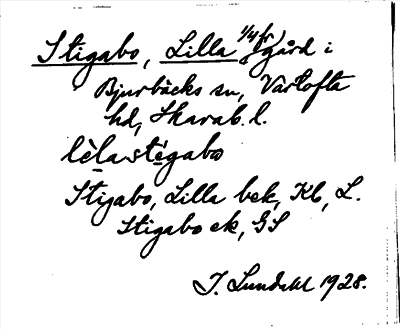 Stigabo, Lilla 1/4 fr, gård i
Bjurbäcks sn, Vartofta
hd, Skarab. l.
lèlastégabo
Stigabo, Lilla bek, Kb, L.
Stigabo ek, GS
J. Lundahl 1928.